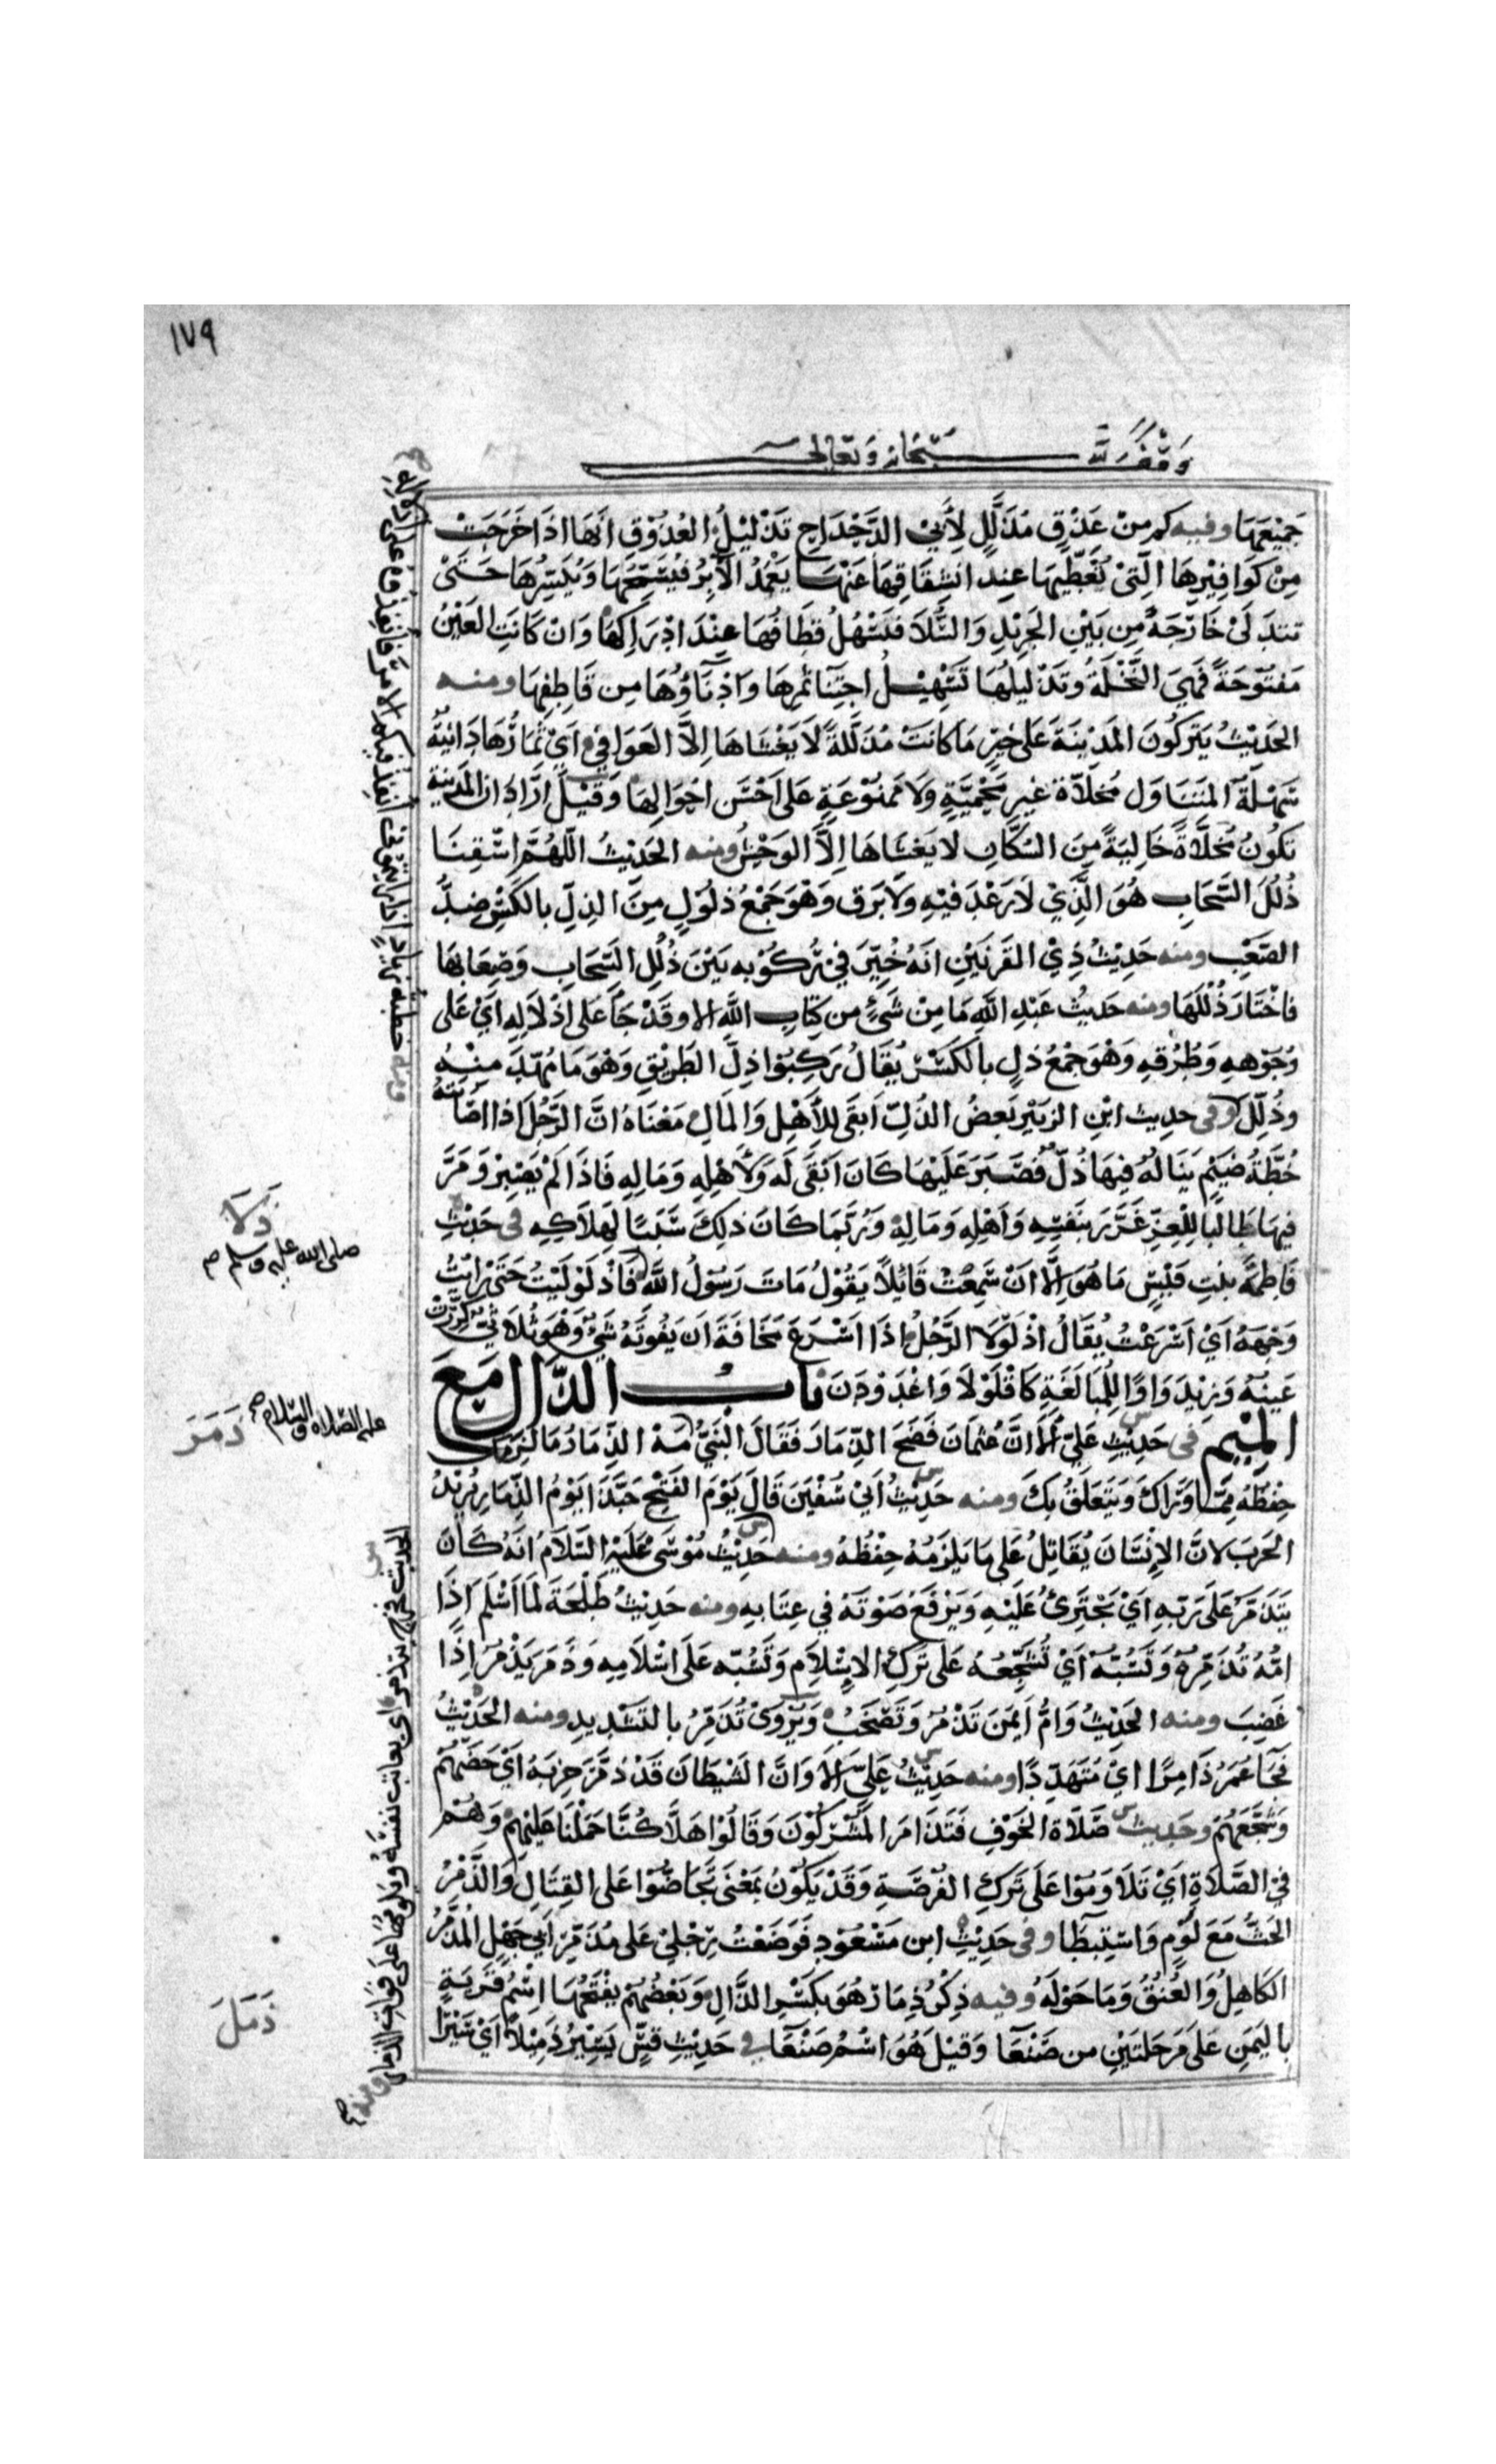 ١٧٩
وقف لله سبحانه وتعالى
جَمِيْعَهَا وفيه كم مِنْ عَذْقٍ مُذَلَّلٍ لِأَبِي الدَّحْدَاحِ تَذْلِيْلُ العُذُوْقِ اَنَّهَا اذَا خَرَجَتْ
مِنْ كَوَافِيْرِهَا الَّتِيْ تُغَطِّيهَا عِنْدَ انْشِقَاقِهَا عَنْهَا يَعْمُدُ الآبِرُ فَيُسَمِّحُهَا وَيُيَسِّرُهَا حَتَّىْ
تتدَلىْ خَارِجَةً مِن بَيْنِ الجَرِيْدِ وَالسُّلَّا فَيَسْهُلُ قطَافُهَا عِنْدَ ادْرَاكِهَا وَانْ كَانَتِ العَيْنُ
مَفتُوْحَةً فَهِيَ النَّخْلَةُ وَتَذْلِيلُهَا تَسْهِيْلُ اجتِنَآ ثَمَرِهَا وَادْنَاؤُهَا مِن قَاطِفِهَا ومنه
الحَدِيْثُ يَترَكُونَ المَدِيْنَةَ عَلىَ خيْرِ مَا كَانَتْ مُذَلَّلةً لَا يَغْشَاهَا اِلاَّ العَوَافِي اَيْ ثِمَارُهَا دَانِيَةٌ
سَهْلَةُ المتَنَاوَل مُخَلَّاةٌ غَيْرِ مَحْمِيَّةٍ وَلَا مَمنُوْعَةٍ عَلَى اَحْسَن احْوَالِهَا وَقِيْلَ ارَادَ ان المَدِينة
تكُونُ مُخَلَّاةً خَالِيَةً مِنَ السُّكَّانِ لا يَغشَاهَا اِلاَّ الوَحْشُ ومنه الحَدِيْثُ اللّهُمَّ اسْقِنَا
ذُلُلَ السَّحَابِ هُوَ الَّذِيْ لَا رَعْدَ فيْهِ وَلَا بَرَق وَهْوَ جَمْعُ ذلُوْلٍ مِنَ الذِلِّ بِالكَسْرِ ضِدُّ
الصَّعْبِ ومنه حَدِيْثُ ذِيْ القَرنَيْنِ انَّهُ خُيِّرَ فِيْ رُكوْبِه بَيْنَ ذُلُلِ السَّحَابِ وَصِعَابِهَا
فاخْتَارَ ذُلُلَهَا ومنه حَديثُ عَبْدِ اللهِ مَا مِنْ شَيءٍ من كتَابِ اللهِ الا وقَدْ جَآ عَلى اذْلَالِهِ ايْ عَلى
وُجُوْهِهِ وَطُرُقِهِ وَهْوَ جَمْعُ ذِلٍ بالكَسْرِ يُقَالُ رَكِبُوْا ذِلَّ الطَرِيْقِ وَهْوَ مَا مُهِّدَ مِنْهُ
وذُلِّلَ وفى حدِيث ابْنِ الزبَيْرِ بَعضُ الذُلِّ اَبقَى لِلأَهْلِ وَالمَالِ مَعْنَاهُ اَنَّ الرَّجُلَ اذَا اصَابَتْهُ
خُطَّةُ ضَيْمٍ يَنَالُهُ فِيهَا ذُلّ فَصَبَرَ عَلَيْهَا كَانَ ابْقَى لَهُ وَلِأَهْلِهِ وَمَالِهِ فَاذَا لَمْ يَصْبِرْ وَمَرَّ
فِيهَا طَالِبًا لِلعِزِّ غَرَّرَ بنَفْسِهِ وَاَهْلِهِ وَمَالِهِ وَرُبَّمَا كَانَ ذلِكَ سَبَبًا لِهَلَاكِهِ فى حَدِيْثِ
فَاطِمَةَ بِنتِ قَيْسٍ مَا هُوَ اِلَّا انْ سَمِعْتُ قَائِلاً يَقُوْلُ مَاتَ رَسُوْلُ اللهِ فَاذْلَوْلَيْتُ حَتَّى رَايْتُ
وَجْهَهُ اَيْ اسْرَعْتُ يُقَالُ اذْلَوْلَا الرَّجُلُ اذَا اَسْرَعَ مَخَافَةَ ان يَفُوتَهُ شَيْءٌ وَهْوَ ثُلَاثي كرِّرَتْ
عَينُهُ وَزِيْدَ وَاوًا لِلْمُبَالَغَةِ كَاقْلَوْلَا وَاغْدَوْدَنَ بابُ الذَّال مَعَ
المِيْمِ فى حَدِيْثِ عَلِيّ اَلَا اِنَّ عُثمَانَ فَضَحَ الذِّمَارَ فَقَالَ النَبِيُّ مَهْ الذِّمَارُ مَا لَزِمَكَ
حِفْظُهُ مِمَّا وَرَآكَ وَيَتَعَلَّقُ بِكَ ومنه حَدِيْثُ اَبِيْ سُفْيٰنَ قَالَ يَوْمَ الفَتْحِ حَبَّذَا يَوْمُ الذِّمَارِ يُرِيْدُ
الحَرْبَ لاَنَّ الاِنْسَانَ يُقَاتِلُ عَلَى مَا يَلزَمُهُ حِفْظُهُ ومنه حَدِيْثُ مُوْسَى عَلَيْهِ السَّلَامُ انَّهُ كَانَ
يَتَذَمَّرُ عَلَى رَبِّهِ اَيْ يَجْتَرِئُ عَلَيْهِ وَيَرْفَعُ صَوْتَهُ فِي عِتَابِهِ ومنه حَدِيْثُ طَلْحَةَ لَمَّا اَسْلَمَ اِذَا
امُّهُ تُذَمِّرُهُ وَتَسُبُّهُ اَيْ تُشَجِّعُهُ عَلَى تَرْكِ الاِسْلَامِ وَتَسُبّه عَلَى اسْلَامِهِ وَذَمَرَ يَذْمُرُ اِذَا
غَضِبَ ومنه الحَدِيْثُ وَامُّ اَيْمَنَ تَذْمُرُ وَتَصْخَبُ وَيُرْوَىْ تُذَمِّرُ بالتَشْدِيدِ ومنه الحَدِيْثُ
فجَآ عُمَرُ ذَامِرًا ايْ مُتَهَدِّدًا ومنه حَدِيْثُ عَلِيّ اَلَا وَانَّ الشَيْطَانَ قَدْ ذَمَّرَ حِزبَهُ اَيْ حَضَّهُمْ
وَشَجَّعَهُمْ وحَدِيث صَلَاةِ الخَوْفِ فَتَذَامَرَ المُشْرِكُوْنَ وَقَالُوْا هَلَّا كُنَّا حَمَلْنَا عَلَيْهِمْ وَهُمْ
فِي الصَّلَاةِ اَيْ تَلَاوَمُوْا عَلَى تَرْكِ الفُرْصَةِ وَقَدْ يَكُوْنُ بمَعْنَى تَحَاضُّوْا عَلى القِتَالِ وَالذَّمْرُ
الحَثُّ مَعَ لَوْمٍ وَاسْتِبْطَا وفى حَدِيْثِ ابن مَسْعُوْدٍ فَوَضَعْتُ رِجْلِيْ عَلَى مُذَمَّرِ اَبِي جَهْلٍ المُذَمَّرُ
الكَاهِلُ وَالعُنُقُ وَمَا حَوْلَهُ وفيه ذِكْرُ ذِمَارٍ هُوَ بِكَسْرِ الذَّالِ وَبَعْضُهُمْ يَفْتَحُهَا اسْمُ قَريَةٍ
بِاليَمَنِ عَلَى مَرحَلتَيْنِ من صَنْعَآ وَقيْلَ هُوَ اسْمُ صَنْعَآ في حَدِيْثِ قسٍّ يَسِيْرُ ذَمِيْلاً اَيْ سَيْرًا
ذَلَا
صلى الله عليه وسلم
عليه الصلاة والسلام
ذَمَرَ
ذَمَلَ
الحديث فخرج يتذمر اى يعاتب نفسه ويلومها على فوات الذمار ومنه